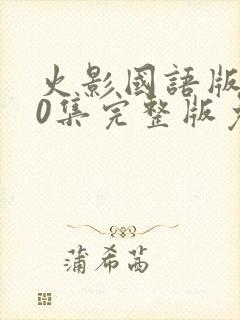 火影國語版
0集完整版
蒲希茜